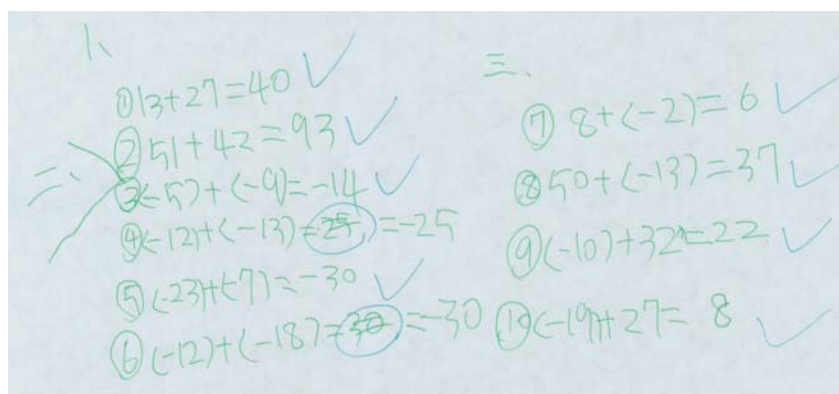 一、
①13+27=40
②51+42=93
二、
③(-5)+(-9)=-14
④(-12)+(-13)=25=-25
⑤(-23)+(-7)=-30
⑥(-12)+(-18)=30=-30
三、
⑦ 8+(-2)=6
⑧50+(-13)=37
⑨(-10)+32=22
⑩(-19)+27=8